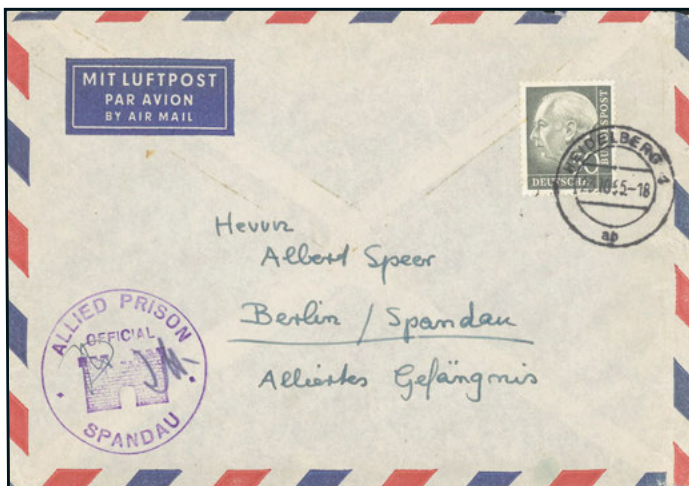 MIT LUFTPOST
PAR AVION
BY AIR MAIL
DEUTSCHE
BUNDESPOST
HEIDELBERG
ab
Herrn
Albert Speer
Berlin / Spandau
Alliiertes Gefängnis
ALLIED PRISON
OFFICIAL
SPANDAU